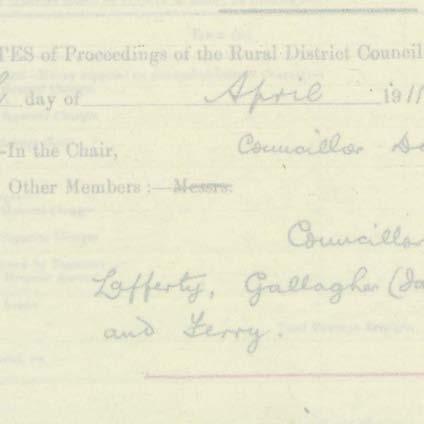 TES of Proceedings of the Rural District Council
day of April 191
-In the Chair, Councillor
Other Members :— Messrs.
Councillor
Lafferty, Gallagher (Ja
and Ferry.